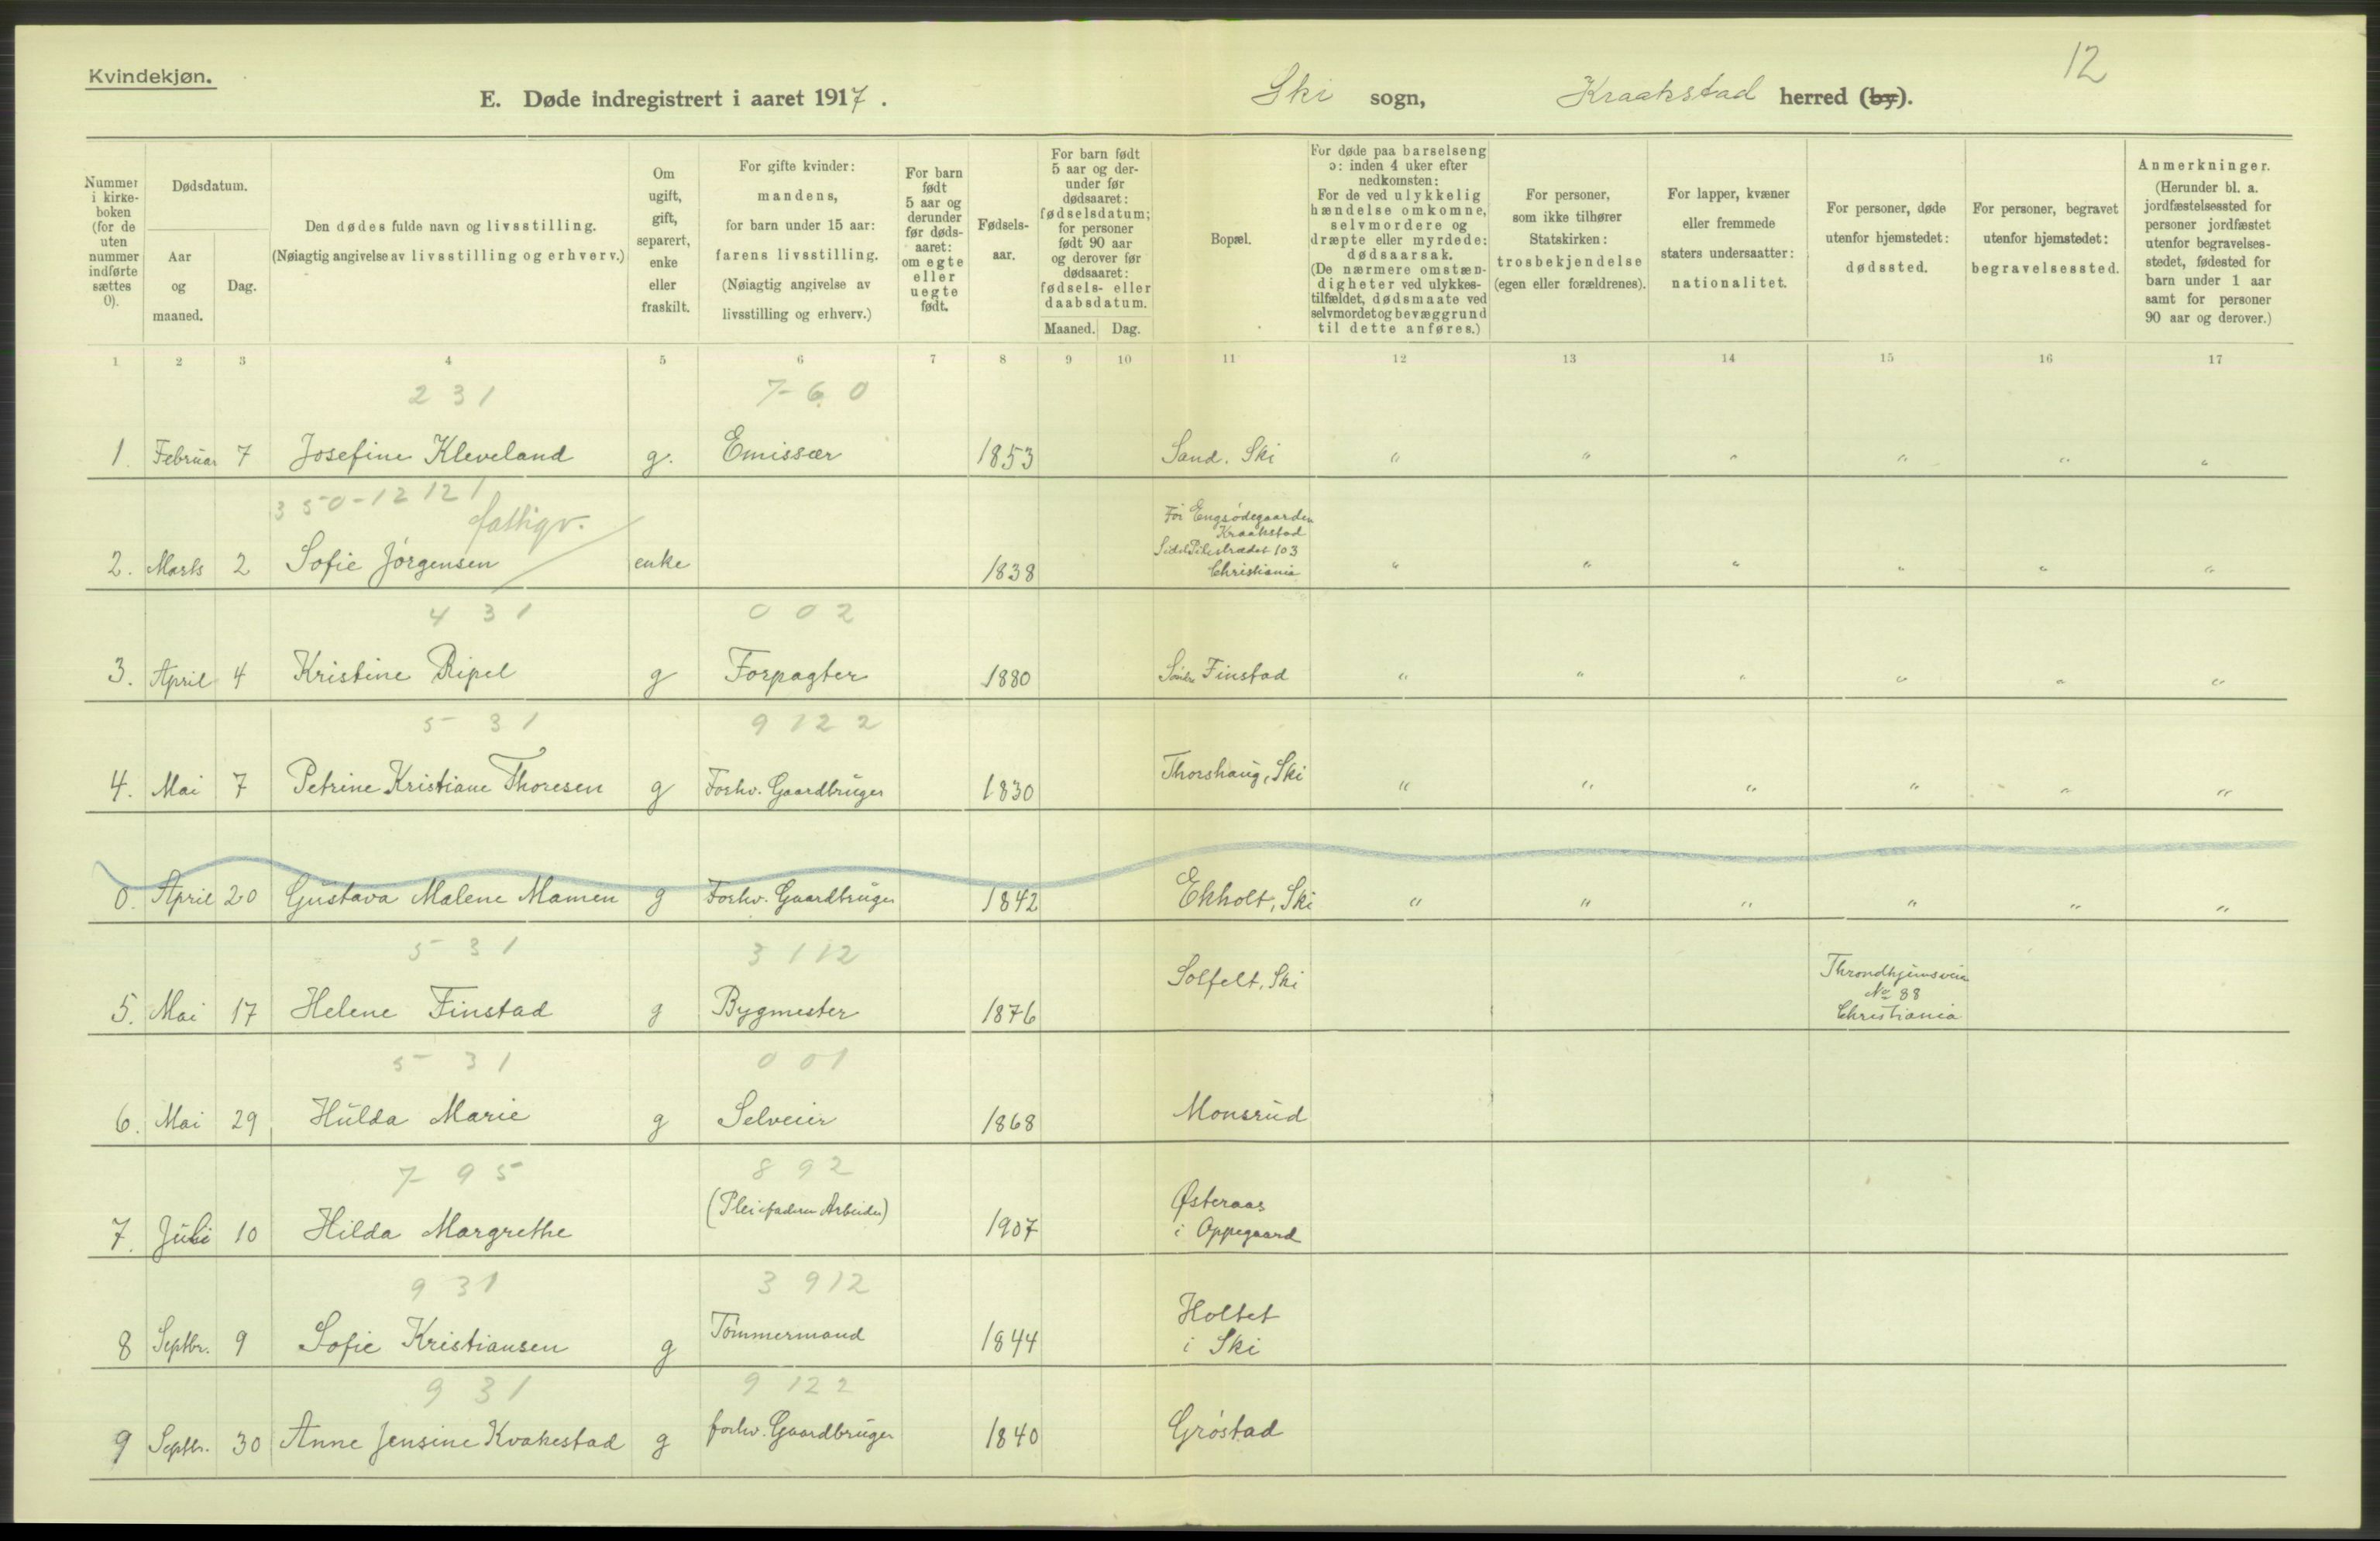 12
Kvindekjøn.
E. Døde indregistrert i aaret 1917. Ski sogn, Kraakstad herred (by).
Nummer i kirkeboken (for de uten nummer indførte sættes 0).
Dødsdatum.
Aar og maaned.
Dag.
Den dødes fulde navn og livsstilling.
(Nøiagtig angivelse av livsstilling og erhverv.)
Om ugift, gift, separert, enke eller fraskilt.
For gifte kvinder: mandens, for barn under 15 aar: farens livsstilling. (Nøiagtig angivelse av livsstilling og erhverv.)
For barn født 5 aar og derunder før dødsaaret: om egte eller uegte født.
Fødselsaar.
For barn født 5 aar og derunder før dødsaaret: fødselsdatum; for personer født 90 aar og derover før dødsaaret: fødsels- eller daabsdatum.
Maaned. Dag.
Bopæl.
For døde paa barselseng ɔ: inden 4 uker efter nedkomsten: For de ved ulykkelig hændelse omkomne, selvmordere og dræpte eller myrdede: dødsaarsak. (De nærmere omstændigheter ved ulykkestilfældet, dødsmaate ved selvmordet og bevæggrund til dette anføres.)
For personer, som ikke tilhører Statskirken: trosbekjendelse (egen eller forældrenes).
For lapper, kvæner eller fremmede staters undersaatter: nationalitet.
For personer, døde utenfor hjemstedet: dødssted.
For personer, begravet utenfor hjemstedet: begravelsessted.
Anmerkninger. (Herunder bl. a. jordfæstelsessted for personer jordfæstet utenfor begravelsesstedet, fødested for barn under 1 aar samt for personer 90 aar og derover.)
1 2 3 4 5 6 7 8 9 10 11 12 13 14 15 16 17
2 3 1 7 6 0
1. Februar 7 Josefine Kleveland g. Emissær 1853 Sand. Ski " " " " " "
3 50-12 12 1
fattigv.
2. Marts 2 Sofie Jørgensen enke 1838 Før Engsødegaarden
Kraakstad
Sidst Pilestrædet 103
Christiania " " " " " "
4 3 1 0 0 2
3. April 4 Kristine Ripel g Forpagter 1880 Søndre Finstad " " " " " "
5 3 1 9 12 2
4. Mai 7 Petrine Kristiane Thoresen g Forhv. Gaardbruger 1830 Thorshaug, Ski " " " " " "
0. April 20 Gustava Malene Mamen g Forhv. Gaardbruger 1842 Ekholt, Ski " " " " " "
5 3 1 3 1 12
5. Mai 17 Helene Finstad g Bygmester 1876 Solfelt, Ski Throndhjemsveien
No 88
Christiania
5 3 1 0 0 1
6. Mai 29 Hulda Marie g Selveier 1868 Monsrud
7 9 5 8 9 2
7. Juli 10 Hilda Margrethe (Pleiefaderen Arbeider) 1907 Østeraas
i Oppegaard
9 3 1 3 9 12
8 Septbr. 9 Sofie Kristiansen g Tømmermand 1844 Holtet
i Ski
9 3 1 9 12 2
9 Septbr. 30 Anne Jensine Kvakestad g forhv. Gaardbruger 1840 Grøstad